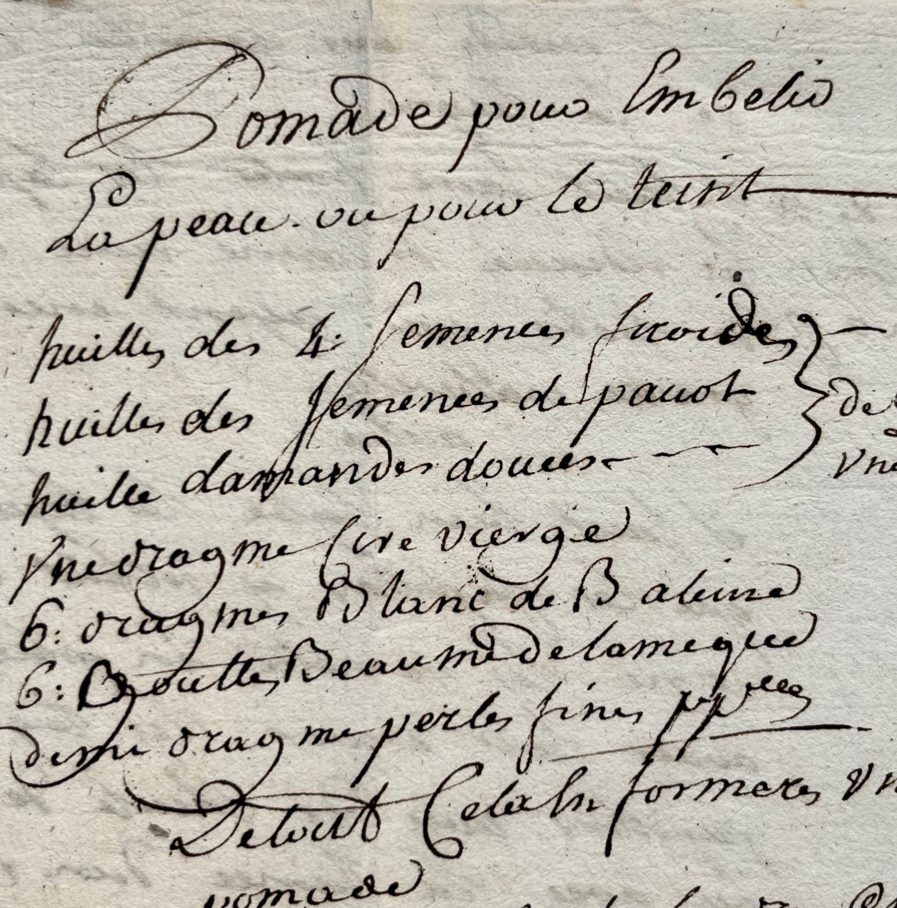 Pomade pour Embelir
La peau. ou pour le teint
huilles des 4: Semences froides
huilles des Semences de pavot
huille damandes douces
de
Vne
Vne dragme Cire vierge
6: dragmes Blanc de Baleine
6: Gouttes Beaume de lameque
demi dragme perles fines ppées
De tout Cela En formeres Vn
pomade